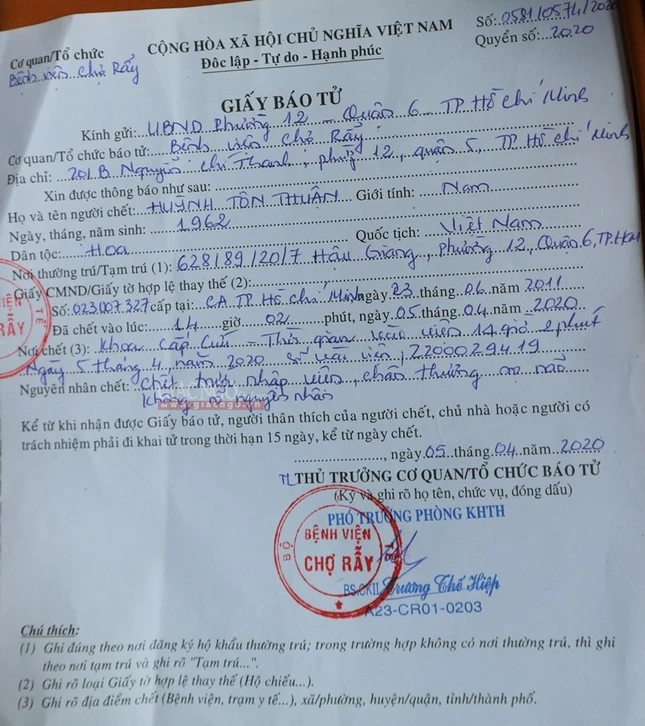 Cơ quan/Tổ chức
Bệnh viện Chợ Rẫy
CỘNG HÒA XÃ HỘI CHỦ NGHĨA VIỆT NAM
Độc lập - Tự do - Hạnh phúc
Số: 0581/0574/2020
Quyển số: 2020
GIẤY BÁO TỬ
Kính gửi: UBND Phường 12 - Quận 6 - TP Hồ Chí Minh
Cơ quan/Tổ chức báo tử: Bệnh viện Chợ Rẫy
Địa chỉ: 201B Nguyễn Chí Thanh, phường 12, quận 5, TP Hồ Chí Minh
Xin được thông báo như sau:
Họ và tên người chết: HUỲNH TÔN THUẬN Giới tính: Nam
Ngày, tháng, năm sinh: 1962
Dân tộc: Hoa Quốc tịch: Việt Nam
Nơi thường trú/Tạm trú (1): 628/89/20/7 Hậu Giang, Phường 12, Quận 6, TP.HCM
Giấy CMND/Giấy tờ hợp lệ thay thế (2):
Số: 023007327 cấp tại: CA TP Hồ Chí Minh ngày 23 tháng 06 năm 2011
Đã chết vào lúc: 14 giờ 02 phút, ngày 05 tháng 04 năm 2020
Nơi chết (3): Khoa Cấp Cứu - Thời gian vào viện 14 giờ 2 phút
Ngày 5 tháng 4 năm 2020 số vào viện, 2200029419
Nguyên nhân chết: Chết trước nhập viện, chấn thương sọ não
không rõ nguyên nhân
www.giacngo.vn
Kể từ khi nhận được Giấy báo tử, người thân thích của người chết, chủ nhà hoặc người có
trách nhiệm phải đi khai tử trong thời hạn 15 ngày, kể từ ngày chết.
, ngày 05 tháng 04 năm 2020
TL THỦ TRƯỞNG CƠ QUAN/TỔ CHỨC BÁO TỬ
(Ký và ghi rõ họ tên, chức vụ, đóng dấu)
PHÓ TRƯỞNG PHÒNG KHTH
BỘ
BỆNH VIỆN
CHỢ RẪY
BS.CKII. Trương Thế Hiệp
A23-CR01-0203
VIỆN
RẪY
TẾ
Chú thích:
(1) Ghi đúng theo nơi đăng ký hộ khẩu thường trú; trong trường hợp không có nơi thường trú, thì ghi
theo nơi tạm trú và ghi rõ "Tạm trú...".
(2) Ghi rõ loại Giấy tờ hợp lệ thay thế (Hộ chiếu...).
(3) Ghi rõ địa điểm chết (Bệnh viện, trạm y tế...), xã/phường, huyện/quận, tỉnh/thành phố.